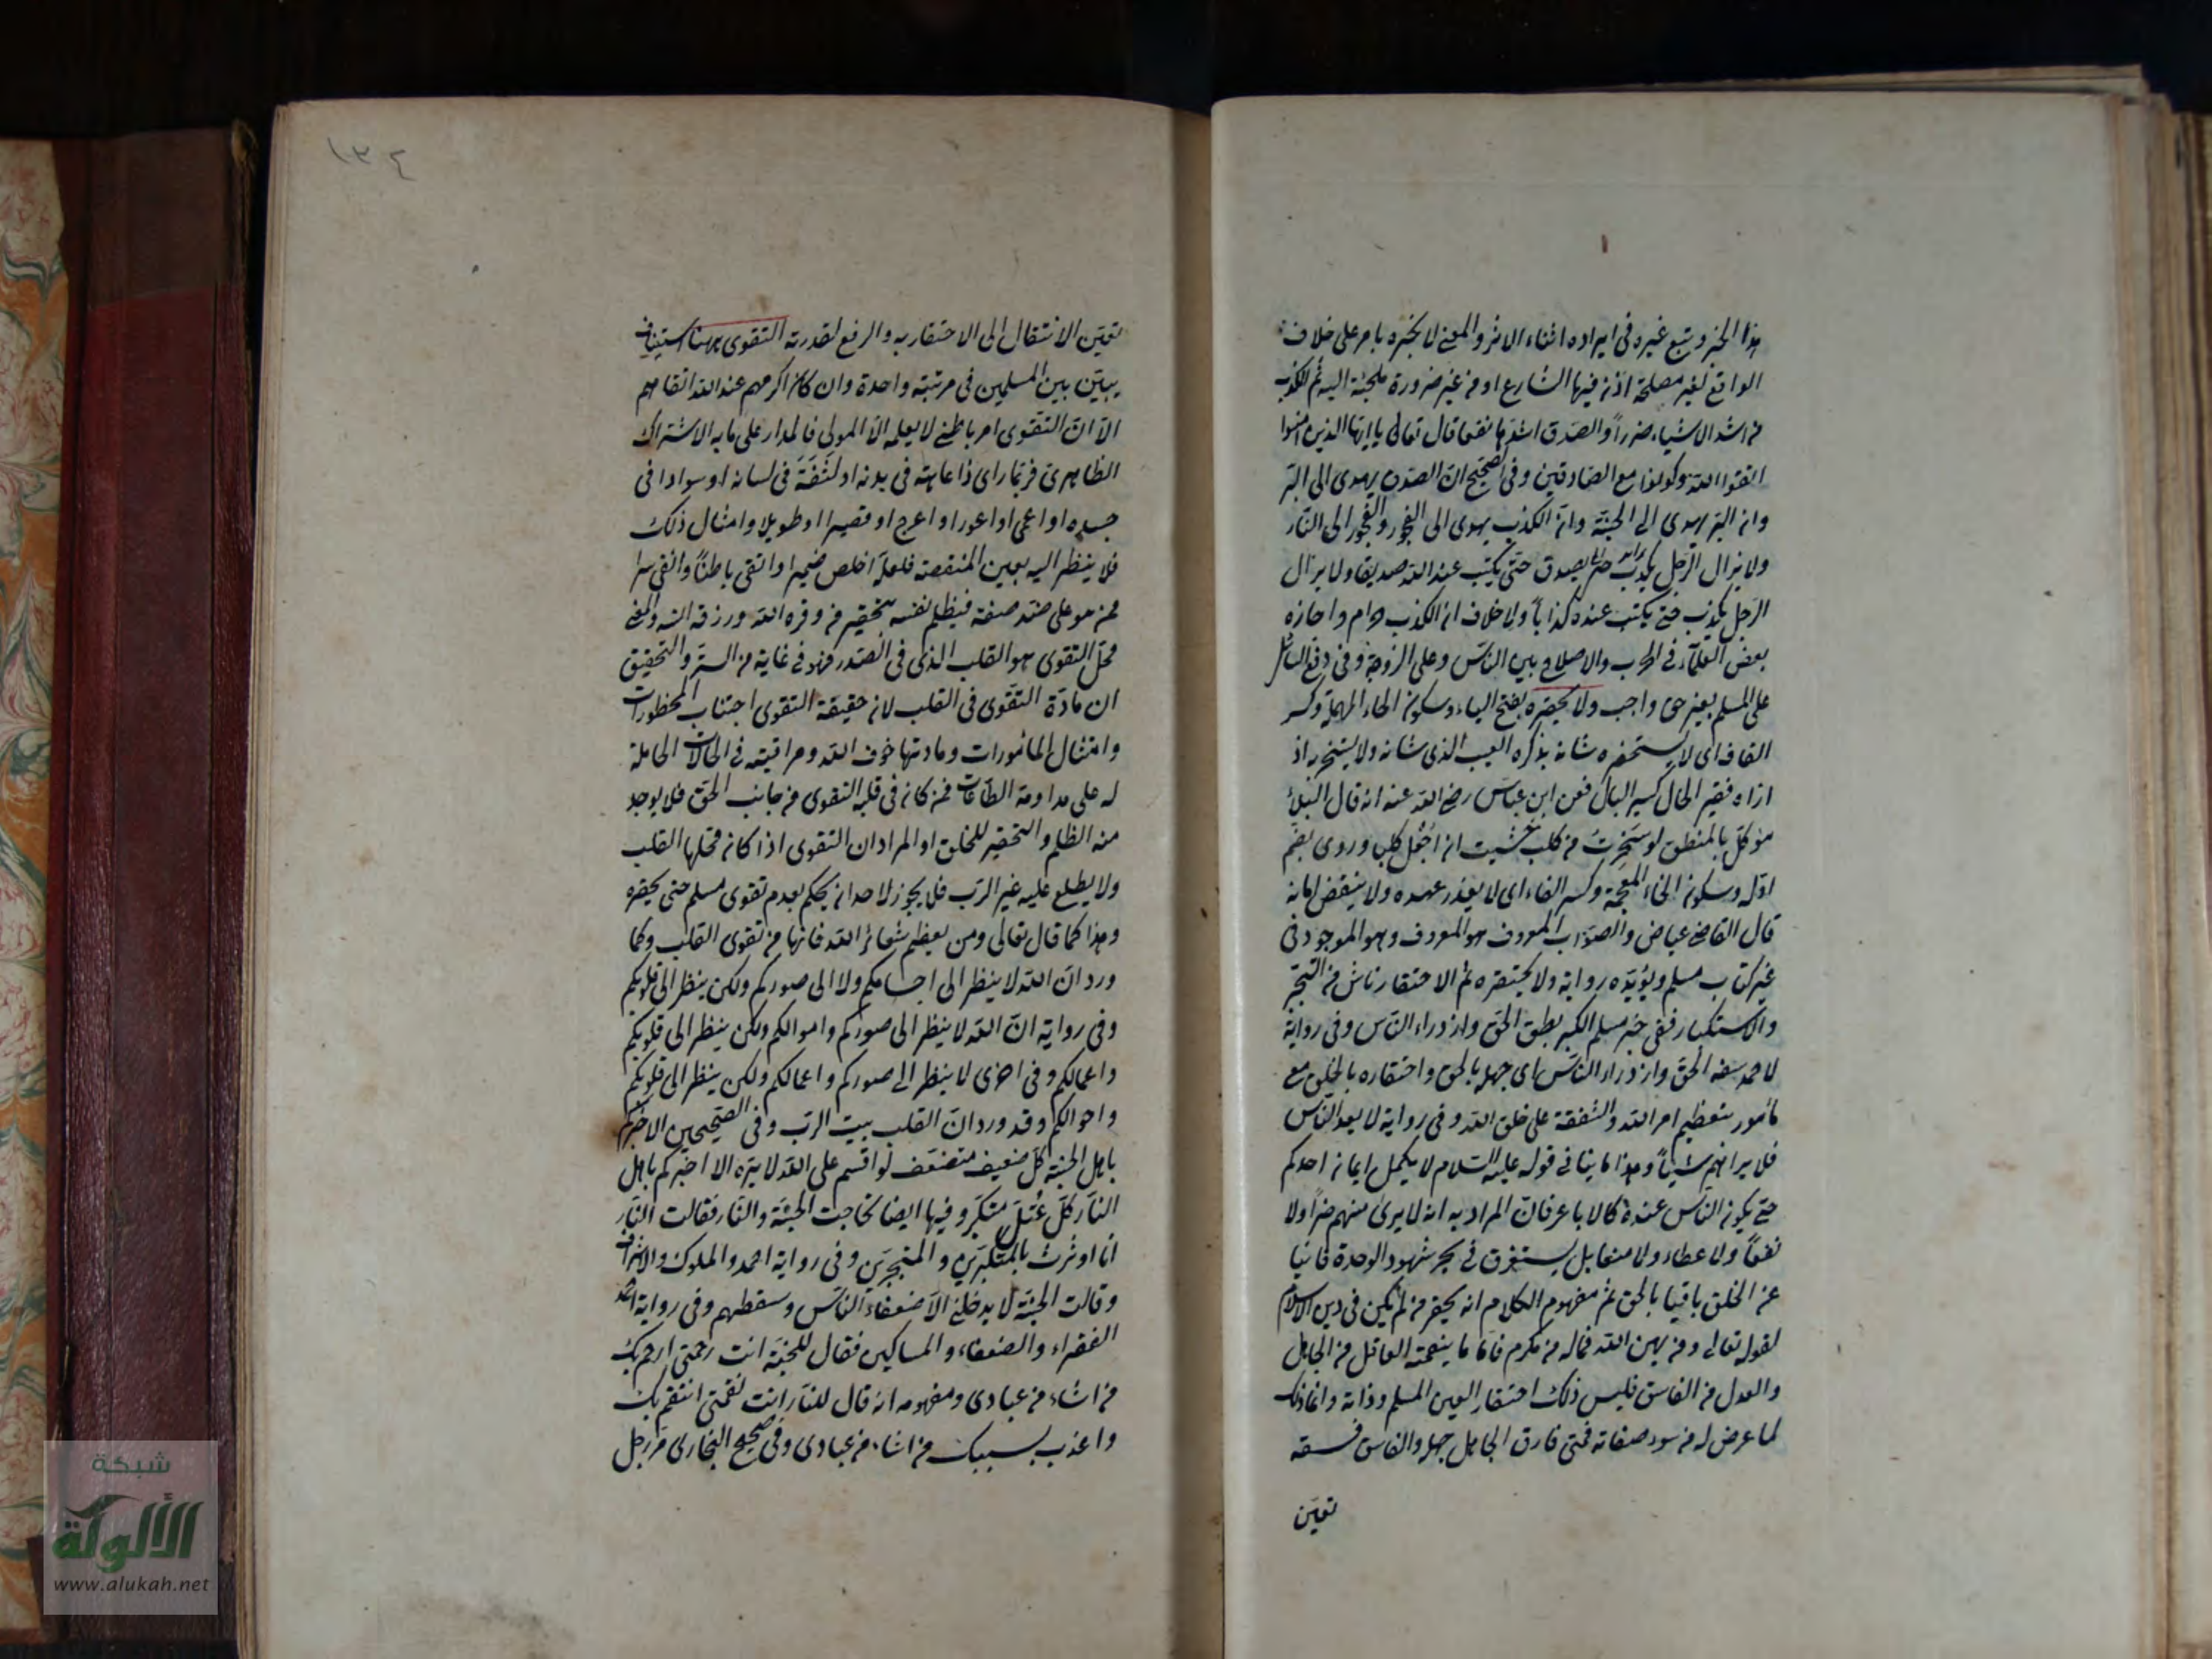 هذا الخبر وتبع غيره في ايراده اثناء الاثر والمعنى لا يخبره بامر على خلاف
الواقع لغير مصلحة اذن فيها الشارع او من غير ضرورة ملجئة اليه ثم الكذب
من اشد الاشياء ضررا والصدق اشدها نفعا قال تعالى يا ايها الذين امنوا
اتقوا الله وكونوا مع الصادقين وفي الصحيح ان الصدق يهدى الى البر
وان البر يهدى الى الجنة وان الكذب يهوى الى الفجور والفجور الى النار
ولا يزال الرجل يصدق حتى يكتب عند الله صديقا ولا يزال
الرجل يكذب حتى يكتب عنده كذابا ولا خلاف ان الكذب حرام واجازه
بعض العلماء في الحرب والاصلاح بين الناس وعلى الزوجة وفي دفع السائل
على المسلم بغير حق واجب ولا يحقره بفتح الياء وسكون الحاء المهملة وكسر
القاف اى لا يستحقره شانه بذكره العيب الذى شانه ولا يسخر به اذ
اراه فقير الحال كسير البال فعن ابن عباس رضى الله عنه انه قال البلاء
موكل بالمنطق لو سخرت من كلب خشيت ان اجعل كلبا وروى بضم
اوله وسكون الخاء المعجمة وكسر الفاء اى لا يغدر عهده ولا ينقض امانه
قال القاضى عياض والصواب المعروف هو المعروف وهو الموجود في
غير كتاب مسلم ويؤيده رواية ولا يحتقره ثم الاحتقار ناش من التجبر
والاستكبار ففي خبر مسلم الكبر بطر الحق وازدراء الناس وفي رواية
لاحمد سفه الحق وازدراء الناس اى جهله بالحق واحتقاره بالخلق مع
مأمور بتعظيم امر الله والشفقة على خلق الله وفي رواية لا يعد الناس
فلا يراهم شيئا وهذا ما ينافي قوله عليه السلام لا يكمل ايمان احدكم
حتى يكون الناس عنده كالاباعر فان المراد به انه لا يرى منهم ضرا ولا
نفعا ولا عطاء ولا منعا بل يستغرق في بحر شهود الوحدة فانيا
عن الخلق باقيا بالحق ثم مفهوم الكلام انه يحقر من لم يكن في دين الاسلام
لقوله تعالى ومن يهن الله فما له من مكرم فاما ما ينقمه العاقل من الجاهل
والعدل من الفاسق فليس ذلك احتقار العين المسلم وذاته وانما ذلك
لما عرض له من سوء صفاته فمتى فارق الجاهل جهله والفاسق فسقه
تعين
١٣٤
تعين الانتقال الى الاحتقار به والرفع لقدرته التقوى ههنا استيناف
يبين بين المسلمين في مرتبة واحدة وان كان اكرمهم عند الله اتقاهم
الا ان التقوى امر باطني لا يعلمه الا المولى فالمدار على ما به الاشتراك
الظاهرى فربما راى ذا عاهة في بدنه او لثغة في لسانه او سوادا في
جسده او اعمى او اعور او اعرج او قصيرا او طويلا وامثال ذلك
فلا ينظر اليه بعين المنقصة فلعله اخلص ضميرا واتقى باطنا وانقى سرا
ممن هو على ضد صفته فيظلم نفسه بتحقير من وقره الله ورزقه والمعنى
محل التقوى هو القلب الذى في الصدر فهو في غاية من الستر والتحقيق
ان مادة التقوى في القلب لان حقيقة التقوى اجتناب المحظورات
وامتثال المأمورات ومادتها خوف الله ومراقبته في الحالات الحاملة
له على مداومة الطاعات فمن كان في قلبه التقوى من جانب الحق فلا يوجد
منه الظلم والتحقير للخلق او المراد ان التقوى اذا كان محلها القلب
ولا يطلع عليه غير الرب فلا يجوز لاحد ان يحكم بعدم تقوى مسلم حتى يحقره
وهذا كما قال تعالى ومن يعظم شعائر الله فانها من تقوى القلب وكما
ورد ان الله لا ينظر الى اجسامكم ولا الى صوركم ولكن ينظر الى قلوبكم
وفي رواية ان الله لا ينظر الى صوركم واموالكم ولكن ينظر الى قلوبكم
واعمالكم وفي اخرى لا ينظر الى صوركم واعمالكم ولكن ينظر الى قلوبكم
واحوالكم وقد ورد ان القلب بيت الرب وفي الصحيحين الا اخبركم
باهل الجنة كل ضعيف متضعف لو اقسم على الله لابره الا اخبركم باهل
النار كل عتل متكبر وفيها ايضا تحاجت الجنة والنار فقالت النار
انا اوثرت بالمتكبرين والمتجبرين وفي رواية احمد والملوك والاشراف
وقالت الجنة لا يدخلنى الا ضعفاء الناس وسقطهم وفي رواية احمد
الفقراء والضعفاء والمساكين فقال للجنة انت رحمتى ارحم بك
من اشاء من عبادى ومفهومه انه قال للنار انت نقمتى انتقم بك
واعذب بسببك من اشاء من عبادى وفي صحيح البخارى مر رجل
شبكة
الألوكة
www.alukah.net